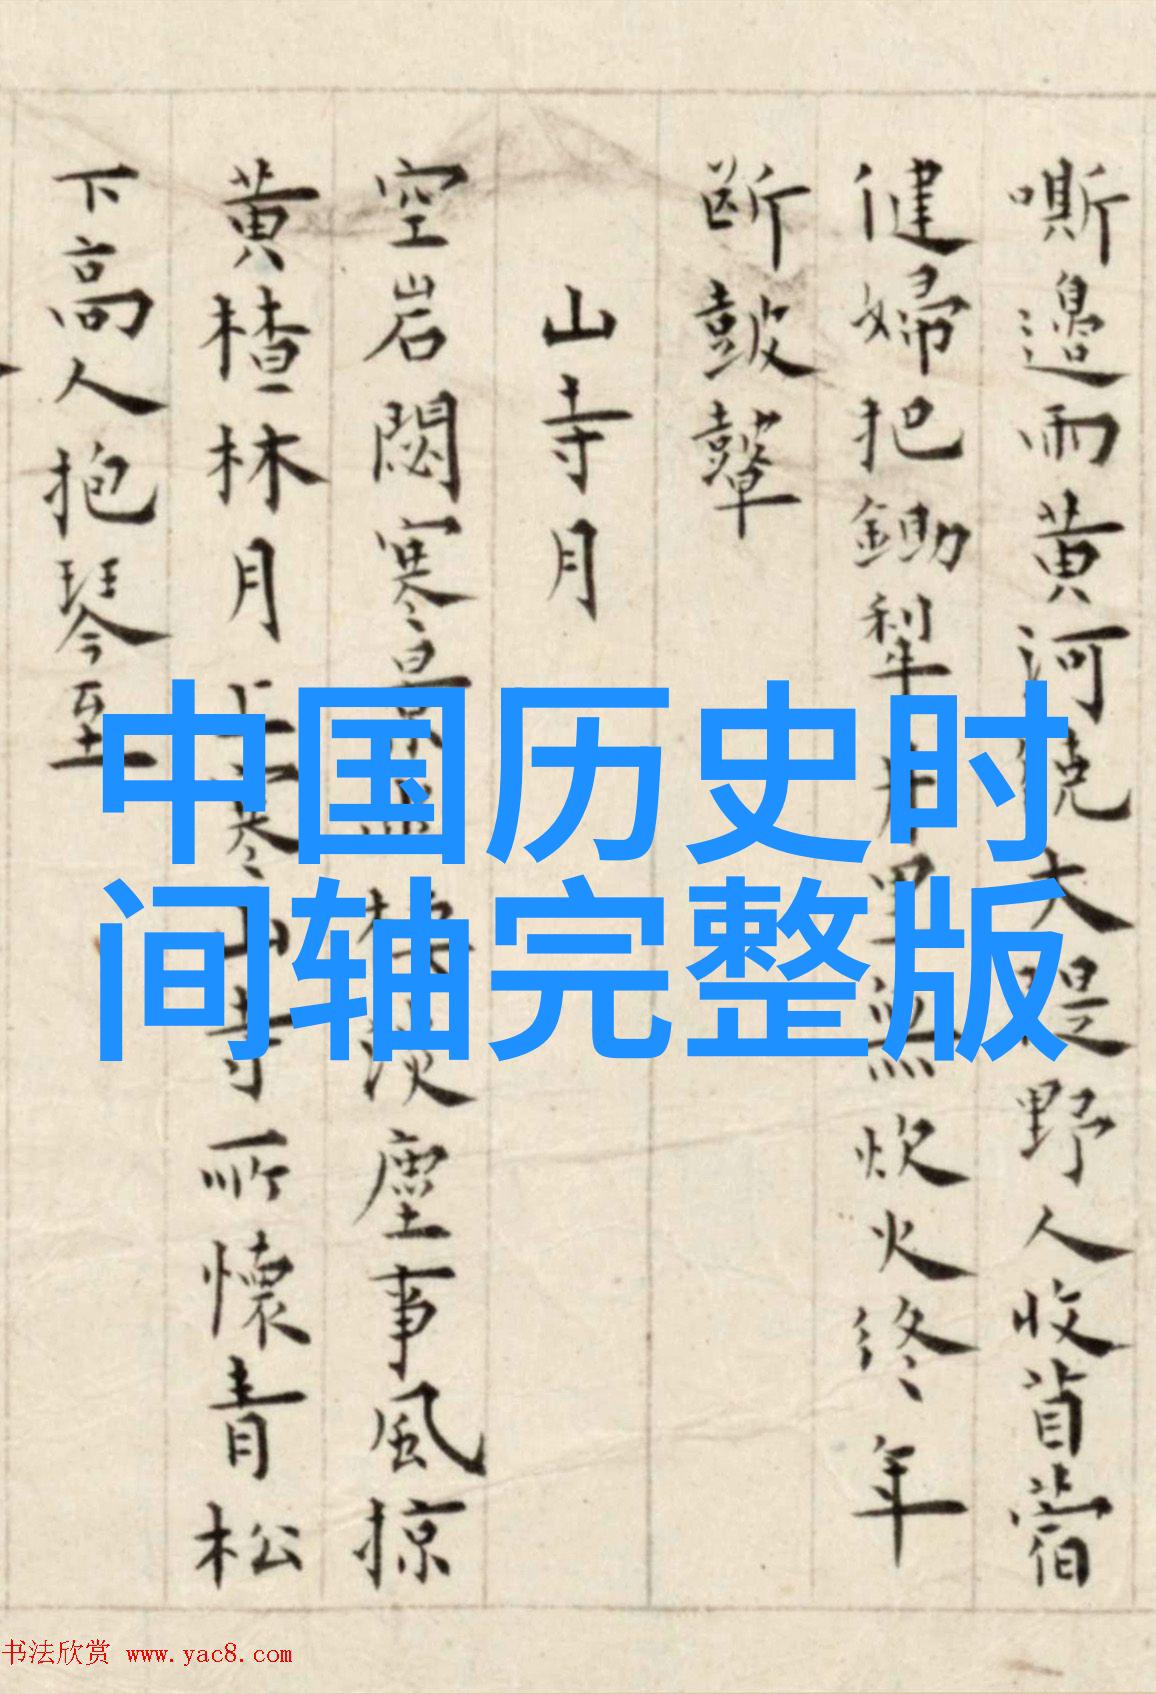 嘶邊雨黄河繞大堤野人收苜蓿
健婦把鋤犁片里無炊火終年
斷鼓鼙
山寺月
空岩閟寒景淡塵事風掠
黄楂林月上寒山寺所懷青松
下高人抱琴至
中国历史时
间轴完整版
书法欣赏 www.yac8.com